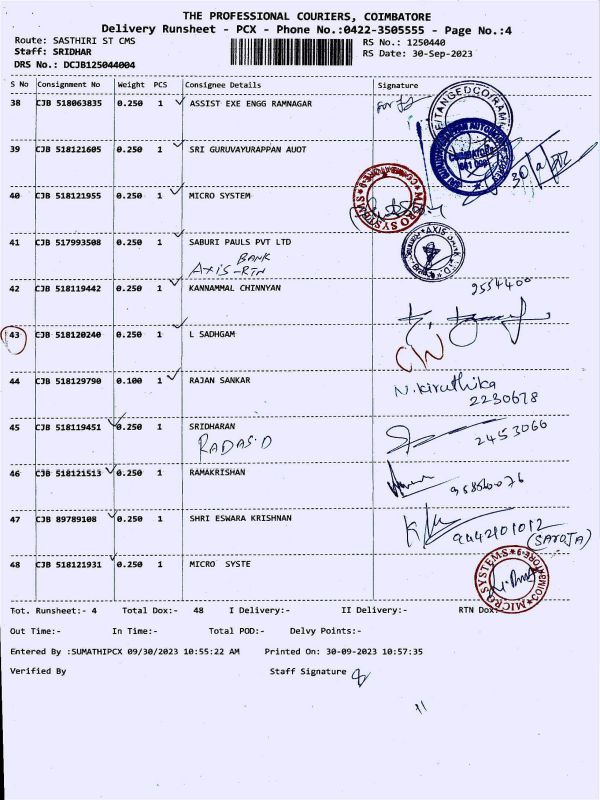 THE PROFESSIONAL COURIERS, COIMBATORE
Delivery Runsheet - PCX - Phone No.:0422-3505555 - Page No.:4
Route: SASTHIRI ST CMS RS No.: 1250440
Staff: SRIDHAR RS Date: 30-Sep-2023
DRS No.: DCJB125044004
S No Consignment No Weight PCS Consignee Details Signature
38 CJB 518063835 0.250 1 ASSIST EXE ENGG RAMNAGAR for
39 CJB 518121605 0.250 1 SRI GURUVAYURAPPAN AUOT
COIMBATORE
40 CJB 518121955 0.250 1 MICRO SYSTEM
MICRO SYSTEMS
41 CJB 517993508 0.250 1 SABURI PAULS PVT LTD
BANK
AXIS-RTN
AXIS
42 CJB 518119442 0.250 1 KANNAMMAL CHINNYAN 9554400
43 CJB 518120240 0.250 1 L SADHGAM
44 CJB 518129790 0.100 1 RAJAN SANKAR N.Kiruthika
2230678
45 CJB 518119451 0.250 1 SRIDHARAN 2453066
RADAS.D
46 CJB 518121513 0.250 1 RAMAKRISHAN
47 CJB 89789108 0.250 1 SHRI ESWARA KRISHNAN 9442101012
(SAROJA)
48 CJB 518121931 0.250 1 MICRO SYSTE
MICRO SYSTEMS COIMBATORE-9
Tot. Runsheet:- 4 Total Dox:- 48 I Delivery:- II Delivery:- RTN Dox:-
Out Time:- In Time:- Total POD:- Delvy Points:-
Entered By :SUMATHIPCX 09/30/2023 10:55:22 AM Printed On: 30-09-2023 10:57:35
Verified By Staff Signature